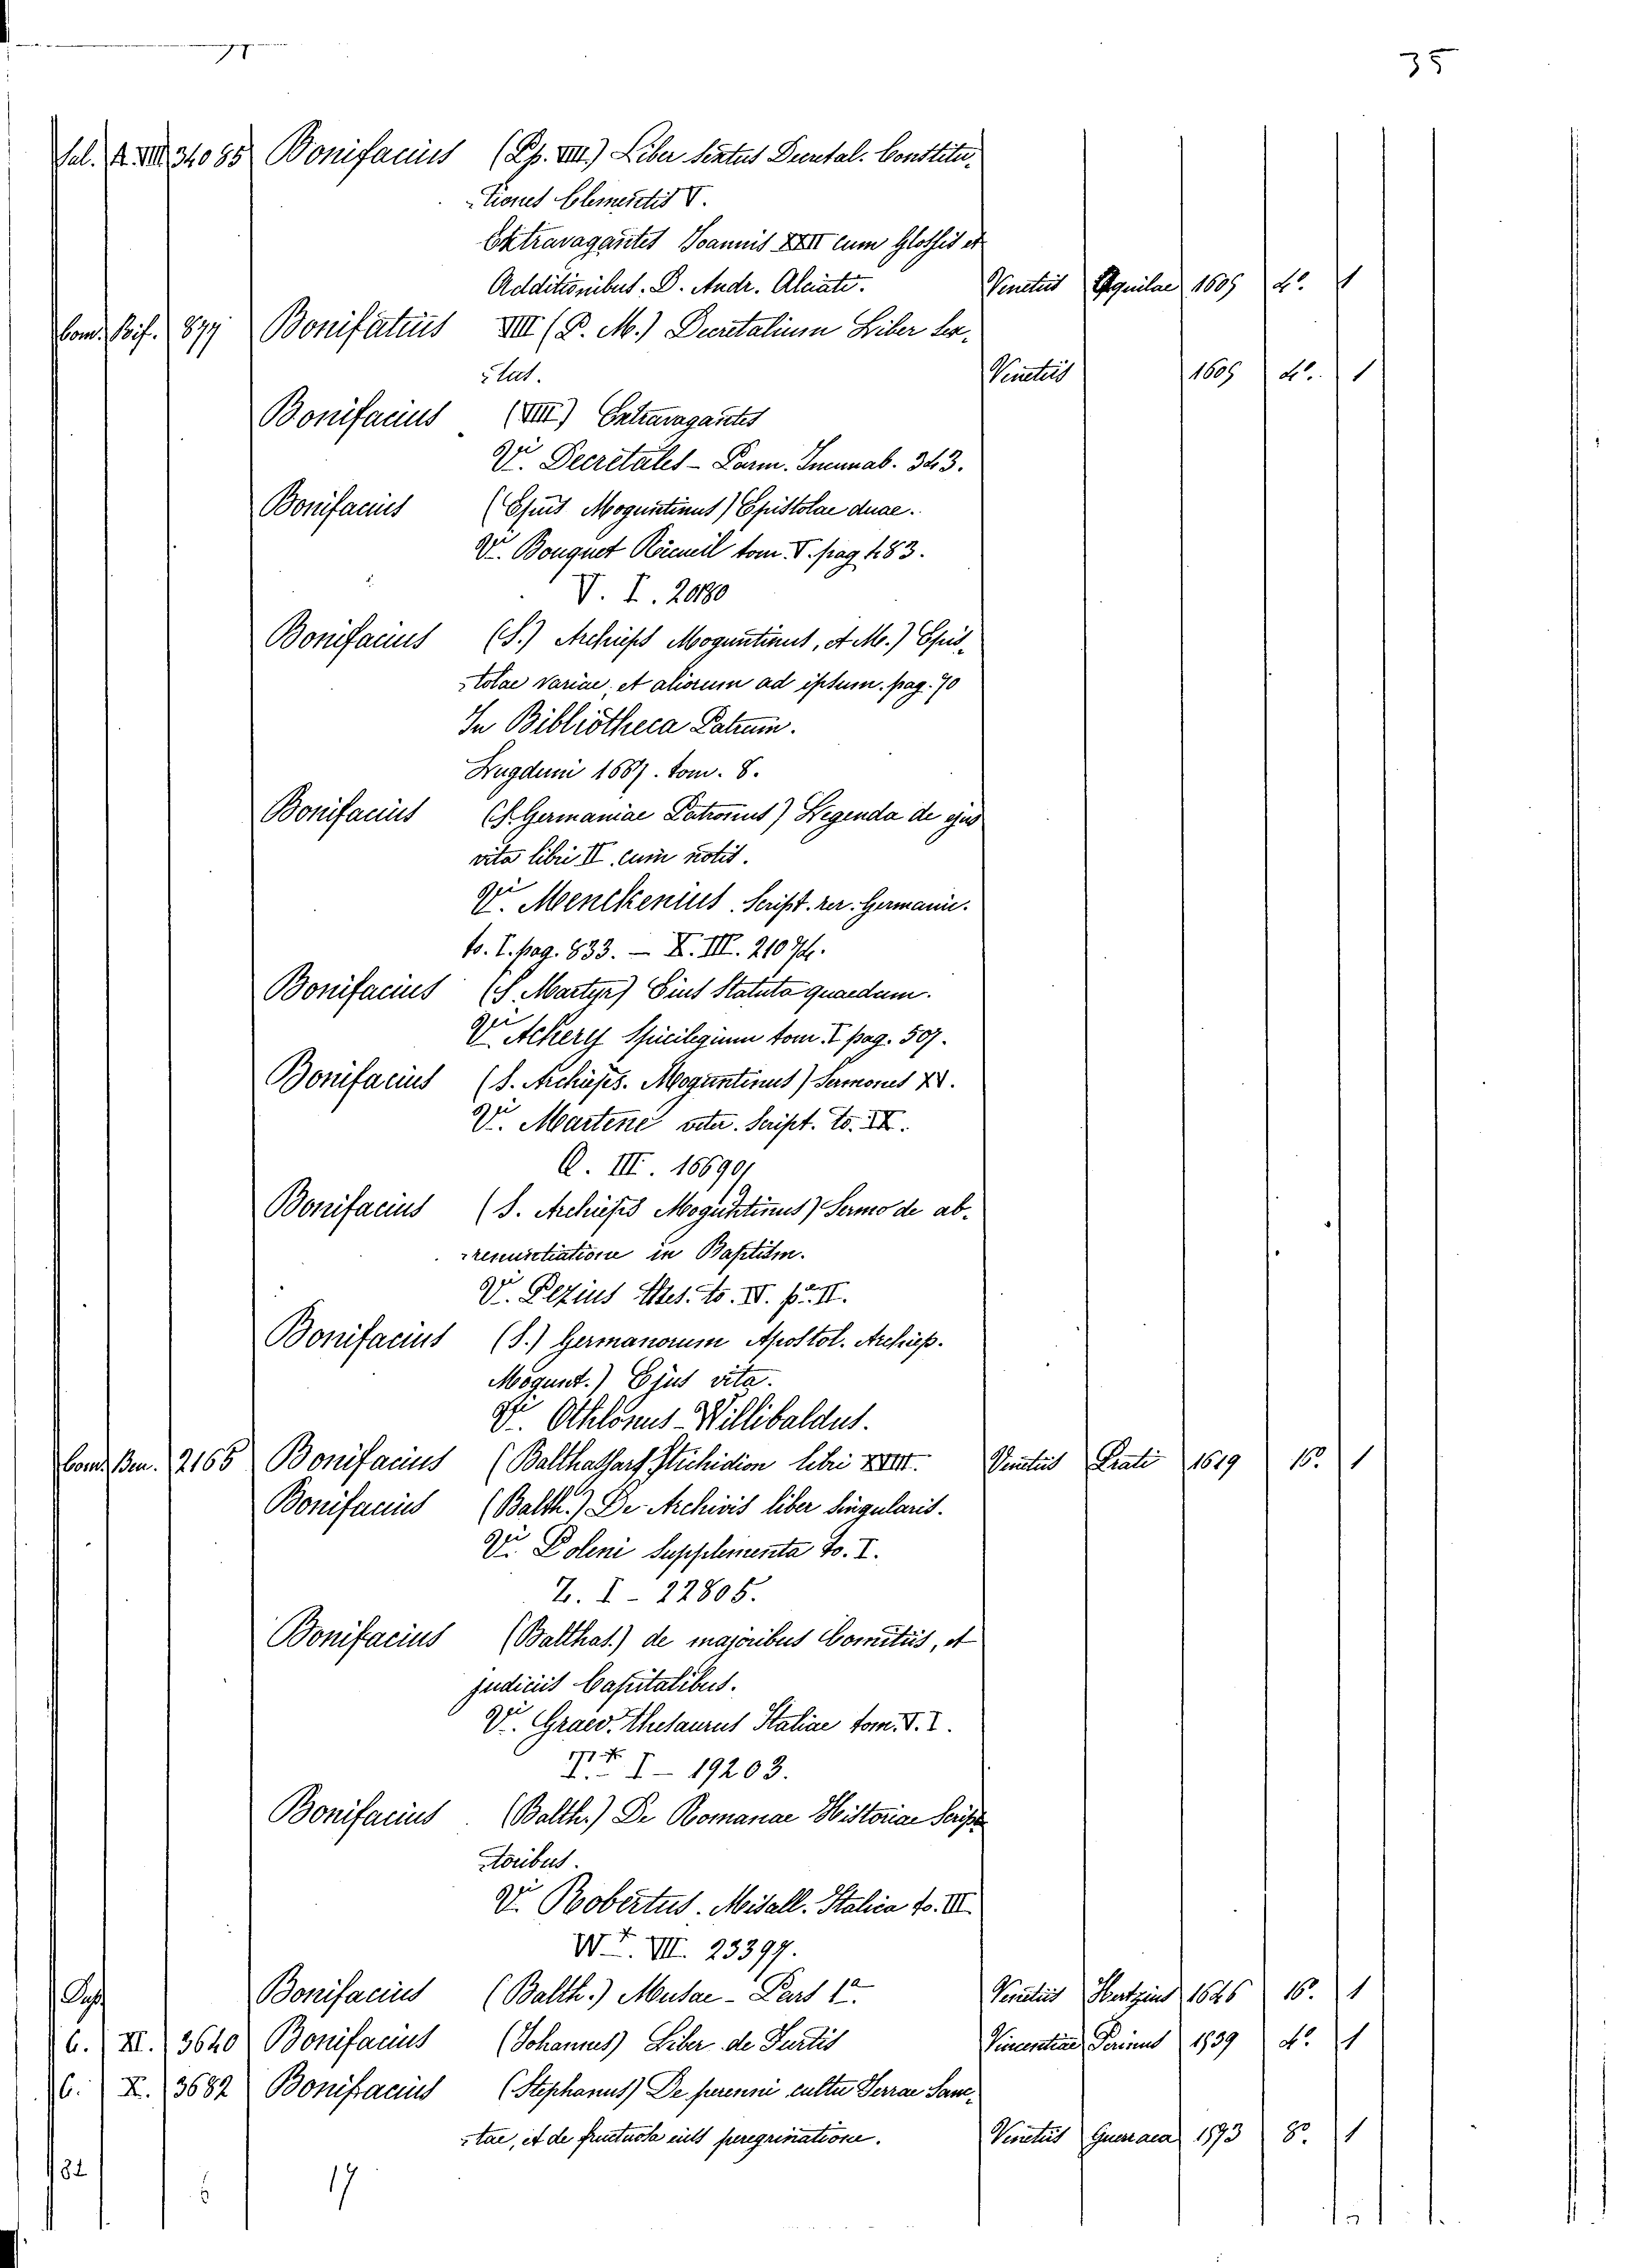 35
34085 Bonifacius (Pp. VIII.) Liber Sextus Decretal. Constitu-
-tiones Clementis V.
Extravagantes Joannis XXII cum Glossis et
Additionibus. D. Andr. Alciati. Venetiis Aquilae 1605 4o. 1
877 Bonifatius VIII (P. M.) Decretalium Liber Sex-
-tus. Venetiis 1605 4o. 1
Bonifacius (VIII) Extravagantes
Vi. Decretales - Parm. Incunab. 343.
Bonifacius (Epūs Moguntinus) Epistolae duae.
Vi. Bouquet Récueil tom. V. pag 483.
V. I. 20180
Bonifacius (S.) Archiēps Moguntinus, et M.) Epis-
-tolae variae, et aliorum ad ipsum. pag. 70
In Bibliotheca Patrum.
Lugduni 1687. tom. 8.
Bonifacius (S. Germaniae Patronus) Legenda de ejus
vita libri II. cum notis.
Vi. Menckenius. Script. rer. Germanic.
to. I. pag. 833. — X. III. 21074.
Bonifacius (S. Martyr) Eius Statuta quaedam.
Vi. Achery Spicilegium tom. I pag. 507.
Bonifacius (S. Archieps. Moguntinus) Sermones XV.
Vi. Martene veter. Script. to. IX.
Q. III. 16690
Bonifacius (S. Archiēps Moguntinus) Sermo de ab-
-renuntiatione in Baptism.
Vi. Pezius Thes. to. IV. p. II.
Bonifacius (S.) Germanorum Apostol. Archiep.
Mogunt.) Ejus vita.
Vi. Othlonus - Willibaldus.
2165 Bonifacius (Balthassar) Stichidion libri XVIII. Venetiis Prati 1619 16. 1
Bonifacius (Balth.) De Archivis liber singularis.
Vi. Poleni Supplementa to. I.
Z. I - 22805.
Bonifacius (Balthas.) de majoribus Comitiis, et
judiciis Capitalibus.
Vi. Graev. Thesaurus Italiae tom. I. I.
I - 19203.
Bonifacius (Balth.) De Romanae Historiae Scrip-
-toribus.
Vi. Robertus. Misall. Italica to. III.
VII. 23397.
Bonifacius (Balth.) Musae - Pars 1a. Venetiis Hertzius 1646 16. 1
6. XI. 3640 Bonifacius (Johannes) Liber de Furtis Vincentiae Perinus 1539 4o. 1
6. X. 3682 Bonifacius (Stephanus) De perenni cultu Terrae Sanc-
-tae, et de fructuosa eius peregrinatione. Venetiis Guerraea 1573 8o. 1
82 17